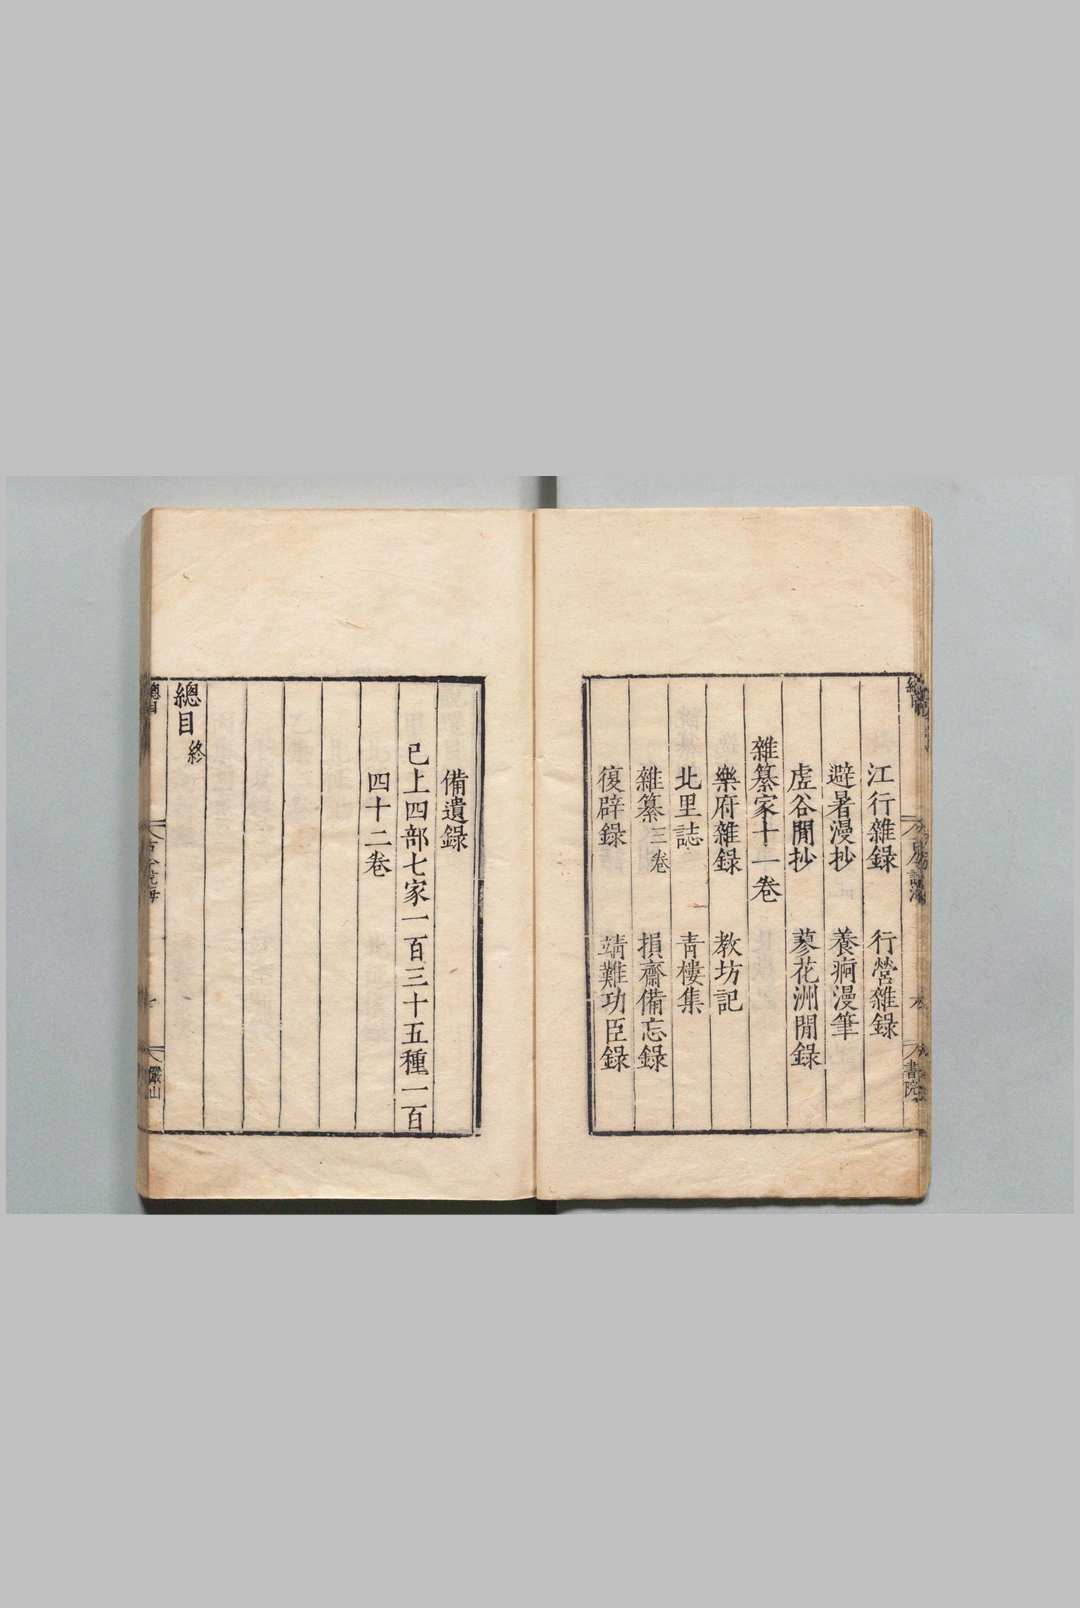 江行雜錄　行營雜錄
避暑漫抄　養痾漫筆
虛谷閒抄　蓼花洲閒錄
雜纂家十一卷
樂府雜錄　教坊記
北里誌　青樓集
雜纂三卷　損齋備忘錄
復辟錄　靖難功臣錄
備遺錄
已上四部七家一百三十五種一百
四十二卷
總目終